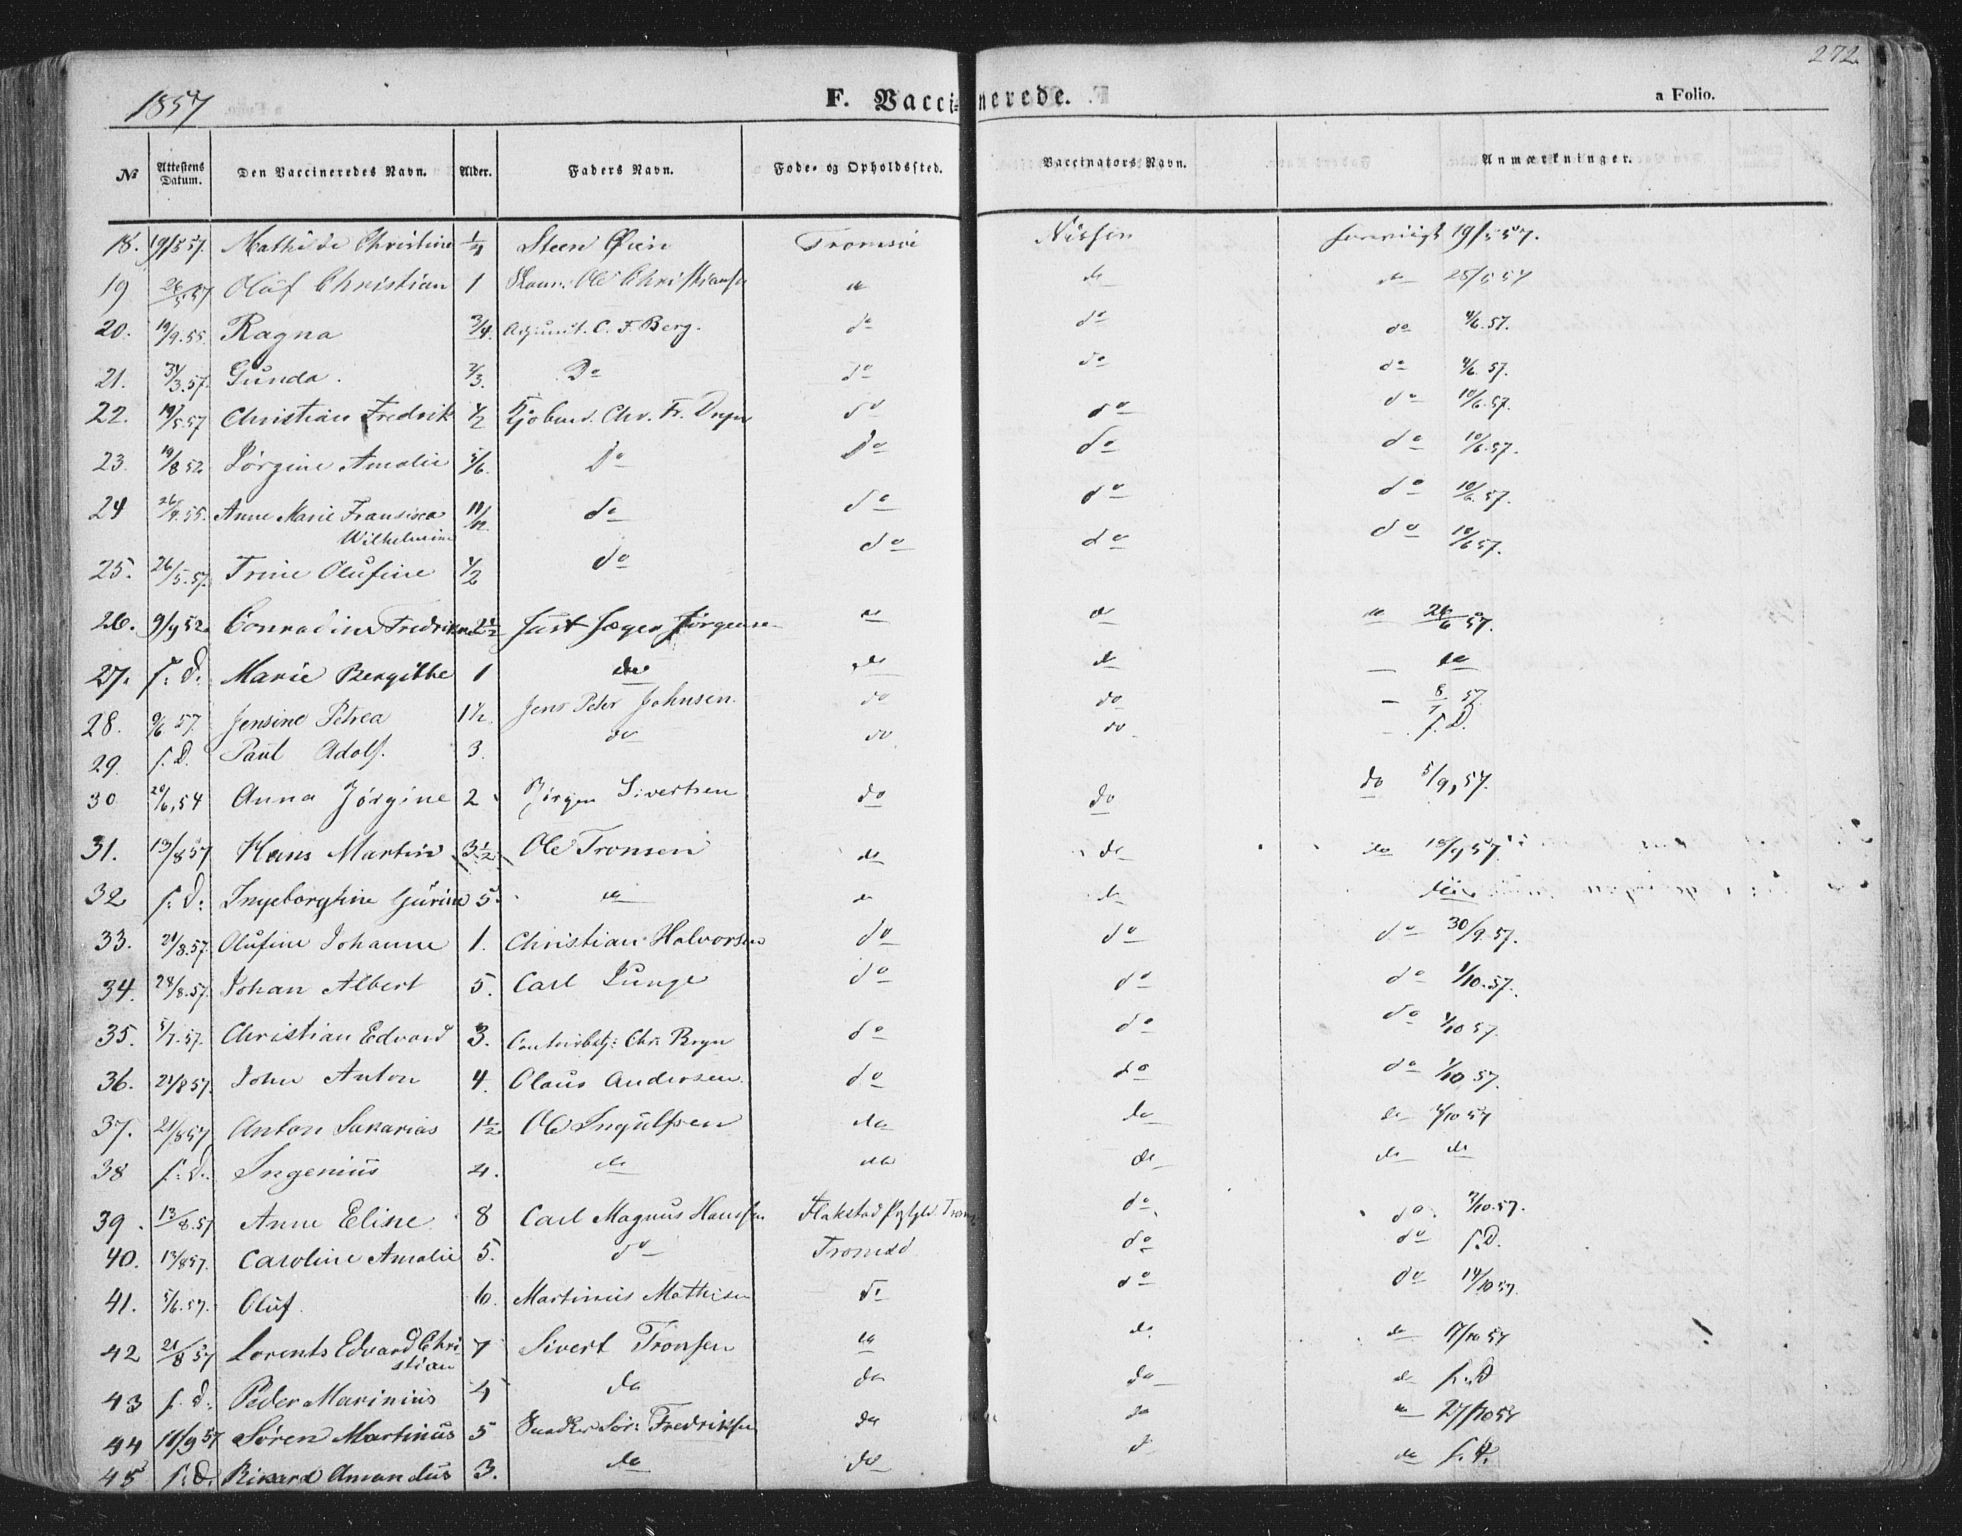 272.
1857 F. Vaccinerede. a Folio.
№ Attestens Datum. Den Vaccineredes Navn. Alder. Faders Navn. Føde- og Opholdssted. Vaccinators Navn. Anmærkninger.
18. 19/5 57. Mathilde Christine 1/4 Steen Øien Tromsøe Nissen 19/5 57.
19 26/5 57 Oluf Christian 1 Ole Christiansen do do do 25/5 57
20. 19/9.55. Ragna 3/4. Adjunct. C. F. Berg. do do do 4/6.57.
21. 31/3.57. Gunda. 2/3. Do do do do 4/6.57.
22. 19/5.57 Christian Fredrik 1/2 Kjøbmd. Chr. Fr. Dreyer do do do 10/6.57.
23. 19/8 52 Jørgine Amalie 5/6. Do Do do do 10/6.57.
24 26/9.55. Anne Marie Fransisca 11/12. do do do do 10/6.57.
Wilhelmine
25. 26/5.57. Trine Olufine 1/2 do do do do 10/6 57.
26. 9/9 52. Conradine Fredrikke 2 1/2 Just Jæger Jørgensen do do do 26/6 57.
27. s: d: Marie Bergitthe 1 do do do — do
28. 9/6 57. Jensine Petrea 1 1/2. Jens Peter Johnsen. do do — 8/7 57.
29. s. d. Paul Adolf. 3. do do do — s. D.
30 20/6, 54 Anna Jørgine 2 Jørgen Sivertsen do do do 5/9, 57.
31. 13/8 57 Hans Martin 3 1/2 Ole Tronsen do do do 18/9 57
32 s: d: Ingeborgtine Gurine 5. do do do do
33. 21/8.57. Olufine Johanne 1. Christian Halvorsen do do do 30/9.57.
34. 28/8.57. Johan Albert 5. Carl Lunge do do do 1/10.57.
35. 5/7.57. Christian Edvard 3. Chr. Bryn do do do 1/10 57.
36. 21/8 57. John Anton 4. Olaus Andersen. do do do 1/10 57.
37. 21/8 57 Anton Sakarias 1 1/2 Ole Ingulfsen do do do 2/10 57
38 s: d: Ingenius 4. do do do do do
39. 13/8.57 Anne Eline 8 Carl Magnus Hanssen Flakstad do do 3/10.57.
40. 13/8 57. Caroline Amalie 5. do Tromsø do do s.D.
41. 5/6.57. Oluf. 6. Martinus Mathisen do do do 14/10 57.
42 21/8 57 Lorents Edvard Chri- 7 Sivert Tronsen do do do 17/10 57
stian
43 s. d. Peder Marinius 4 do do do do s. D
44 18/9 57 Søren Martinus 5 Snedker Sør: Fredriksen do do do 27/10 57
45 s. D. Rikard Amandus 3. do do do do s. d.